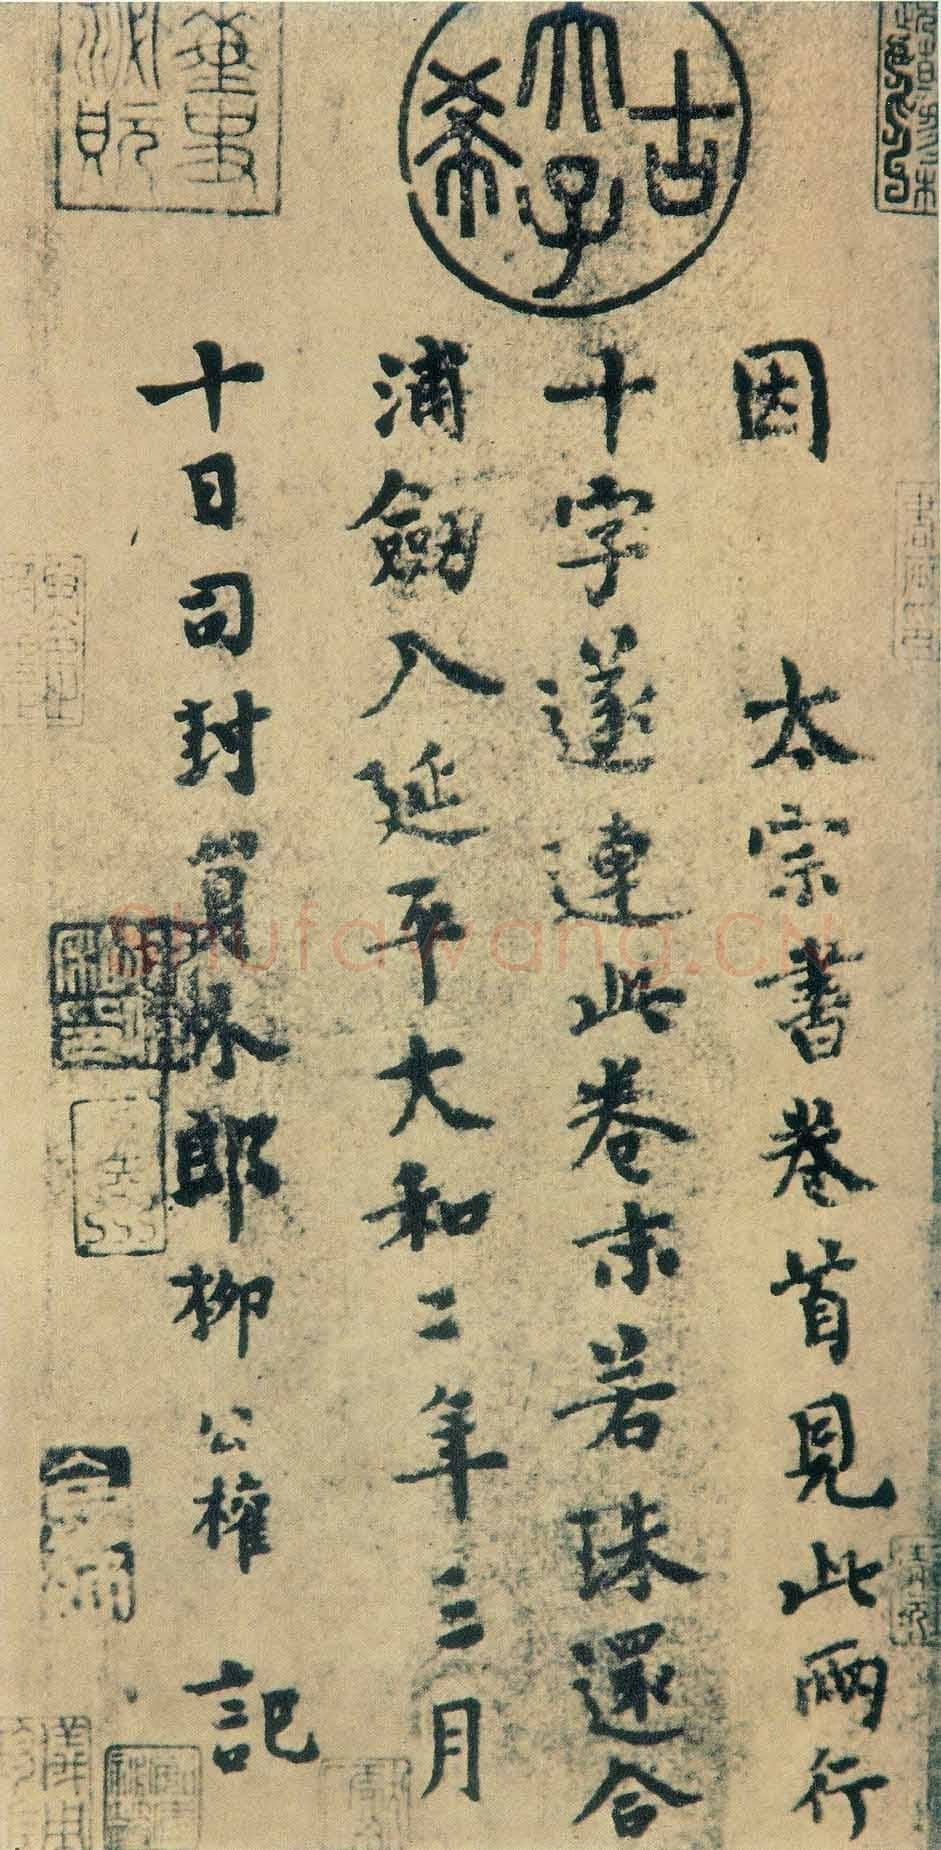 古
天子
希
因 太宗書卷首見此兩行
十字遂連此卷末若珠還合
浦劔入延平大和二年三月
十日司封員外郎柳公權 記
Shufawang.CN